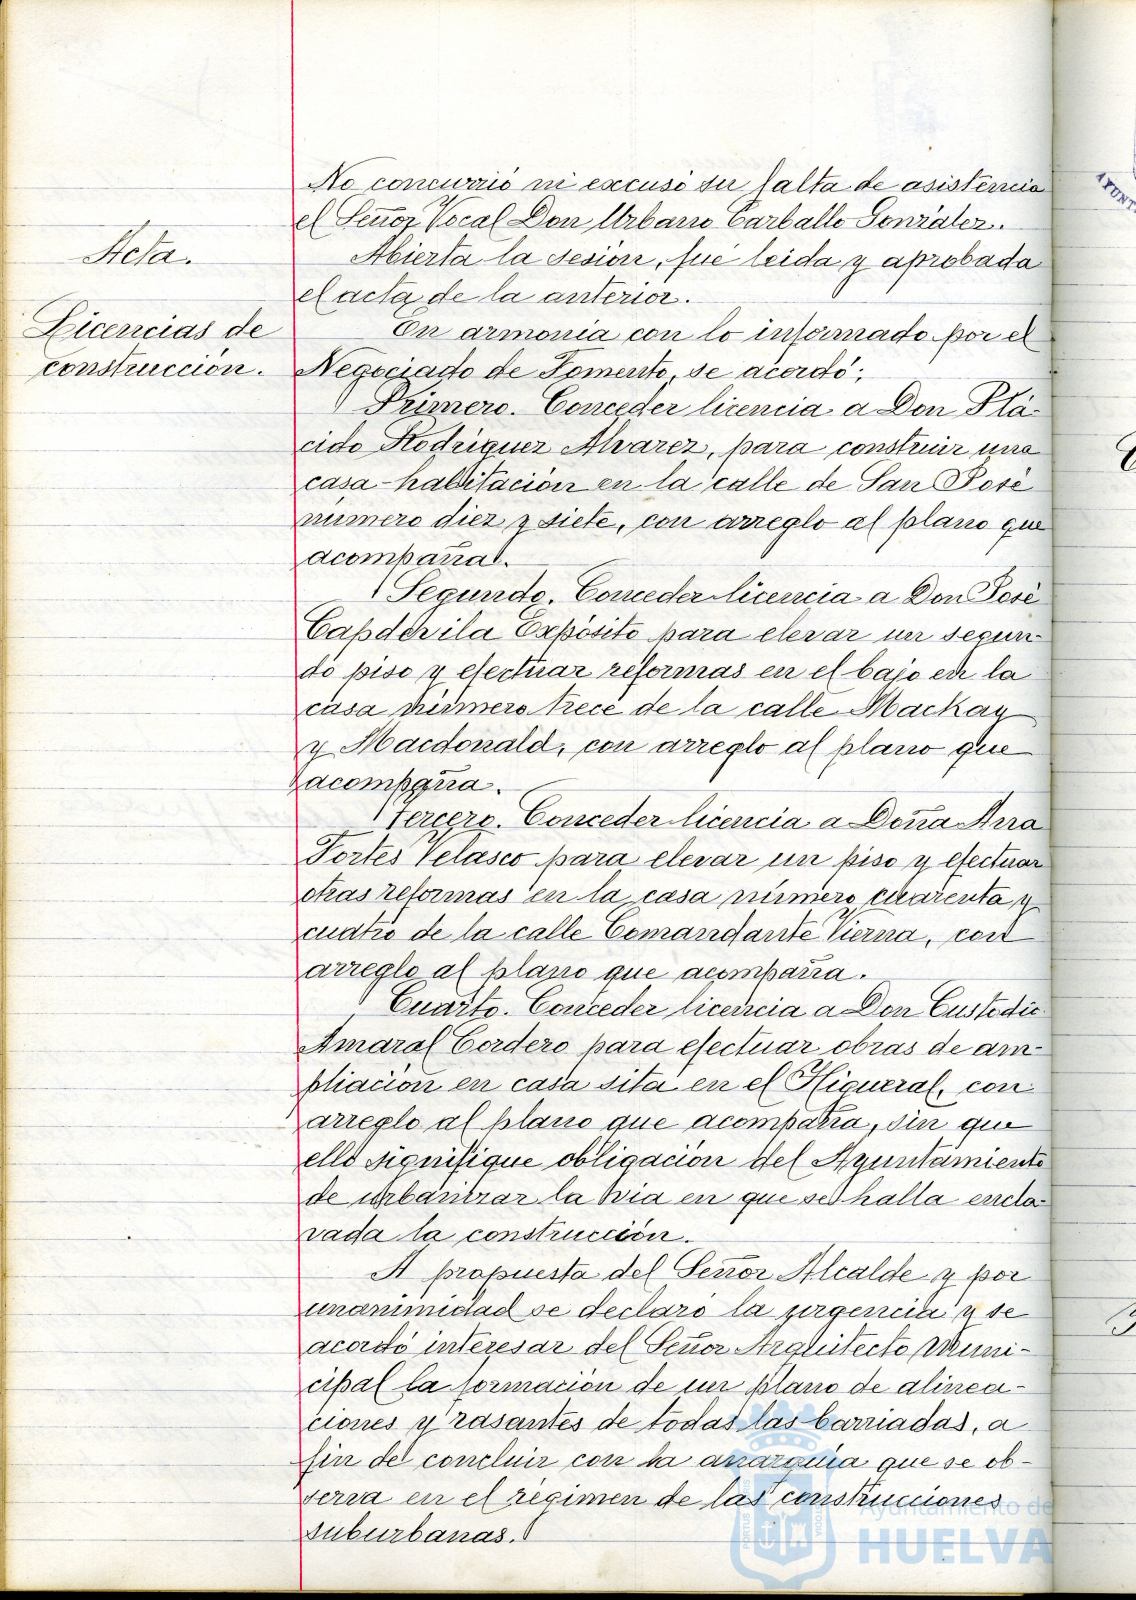 No concurrió ni excusó su falta de asistencia
el Señor Vocal Don Urbano Carballo González.
Acta.
Abierta la sesión, fué leida y aprobada
el acta de la anterior.
Licencias de
construcción.
En armonía con lo informado por el
Negociado de Fomento, se acordó:
Primero. Conceder licencia a Don Plá-
cido Rodriguez Alvarez, para construir una
casa-habitación en la calle de San José
número diez y siete, con arreglo al plano que
acompaña.
Segundo. Conceder licencia a Don José
Capdevila Expósito para elevar un segun-
do piso y efectuar reformas en el bajo en la
casa número trece de la calle Mackay
y Macdonald, con arreglo al plano que
acompaña.
Tercero. Conceder licencia a Doña Ana
Fortes Velasco para elevar un piso y efectuar
otras reformas en la casa número cuarenta y
cuatro de la calle Comandante Vierna, con
arreglo al plano que acompaña.
Cuarto. Conceder licencia a Don Custodio
Amaral Cordero para efectuar obras de am-
pliación en casa sita en el Higueral, con
arreglo al plano que acompaña, sin que
ello signifique obligación del Ayuntamiento
de urbanizar la via en que se halla encla-
vada la construcción.
A propuesta del Señor Alcalde y por
unanimidad se declaró la urgencia y se
acordó interesar del Señor Arquitecto Muni-
cipal la formación de un plano de alinea-
ciones y rasantes de todas las barriadas, a
fin de concluir con la anarquía que se ob-
serva en el régimen de las construcciones
suburbanas.
Ayuntamiento de
HUELVA